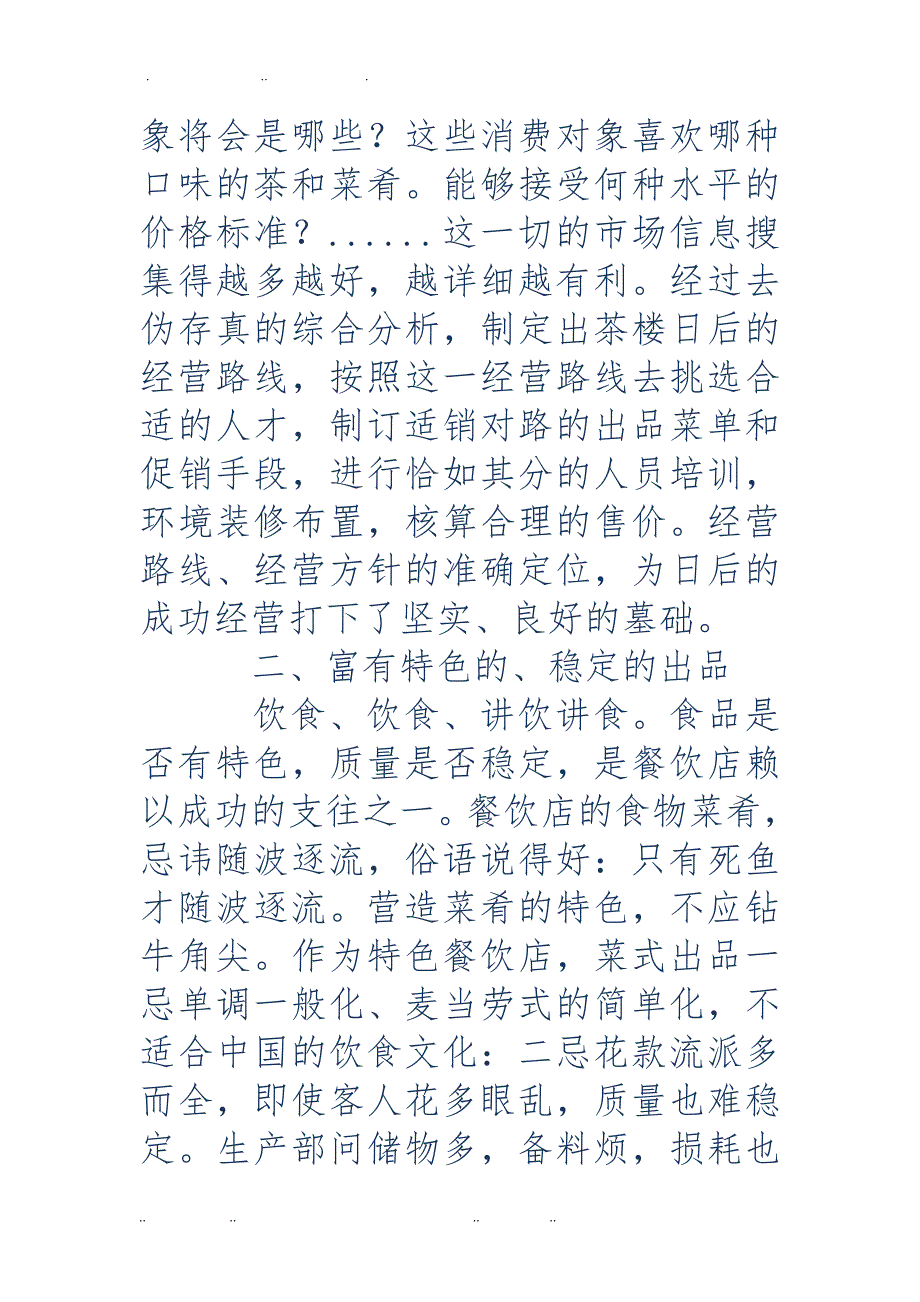 象将会是哪些？这些消费对象喜欢哪种
口味的茶和菜肴。能够接受何种水平的
价格标准？......这一切的市场信息搜
集得越多越好，越详细越有利。经过去
伪存真的综合分析，制定出茶楼日后的
经营路线，按照这一经营路线去挑选合
适的人才，制订适销对路的出品菜单和
促销手段，进行恰如其分的人员培训，
环境装修布置，核算合理的售价。经营
路线、经营方针的准确定位，为日后的
成功经营打下了坚实、良好的墓础。
二、富有特色的、稳定的出品
饮食、饮食、讲饮讲食。食品是
否有特色，质量是否稳定，是餐饮店赖
以成功的支往之一。餐饮店的食物菜肴，
忌讳随波逐流，俗语说得好：只有死鱼
才随波逐流。营造菜肴的特色，不应钻
牛角尖。作为特色餐饮店，菜式出品一
忌单调一般化、麦当劳式的简单化，不
适合中国的饮食文化：二忌花款流派多
而全，即使客人花多眼乱，质量也难稳
定。生产部问储物多，备料烦，损耗也